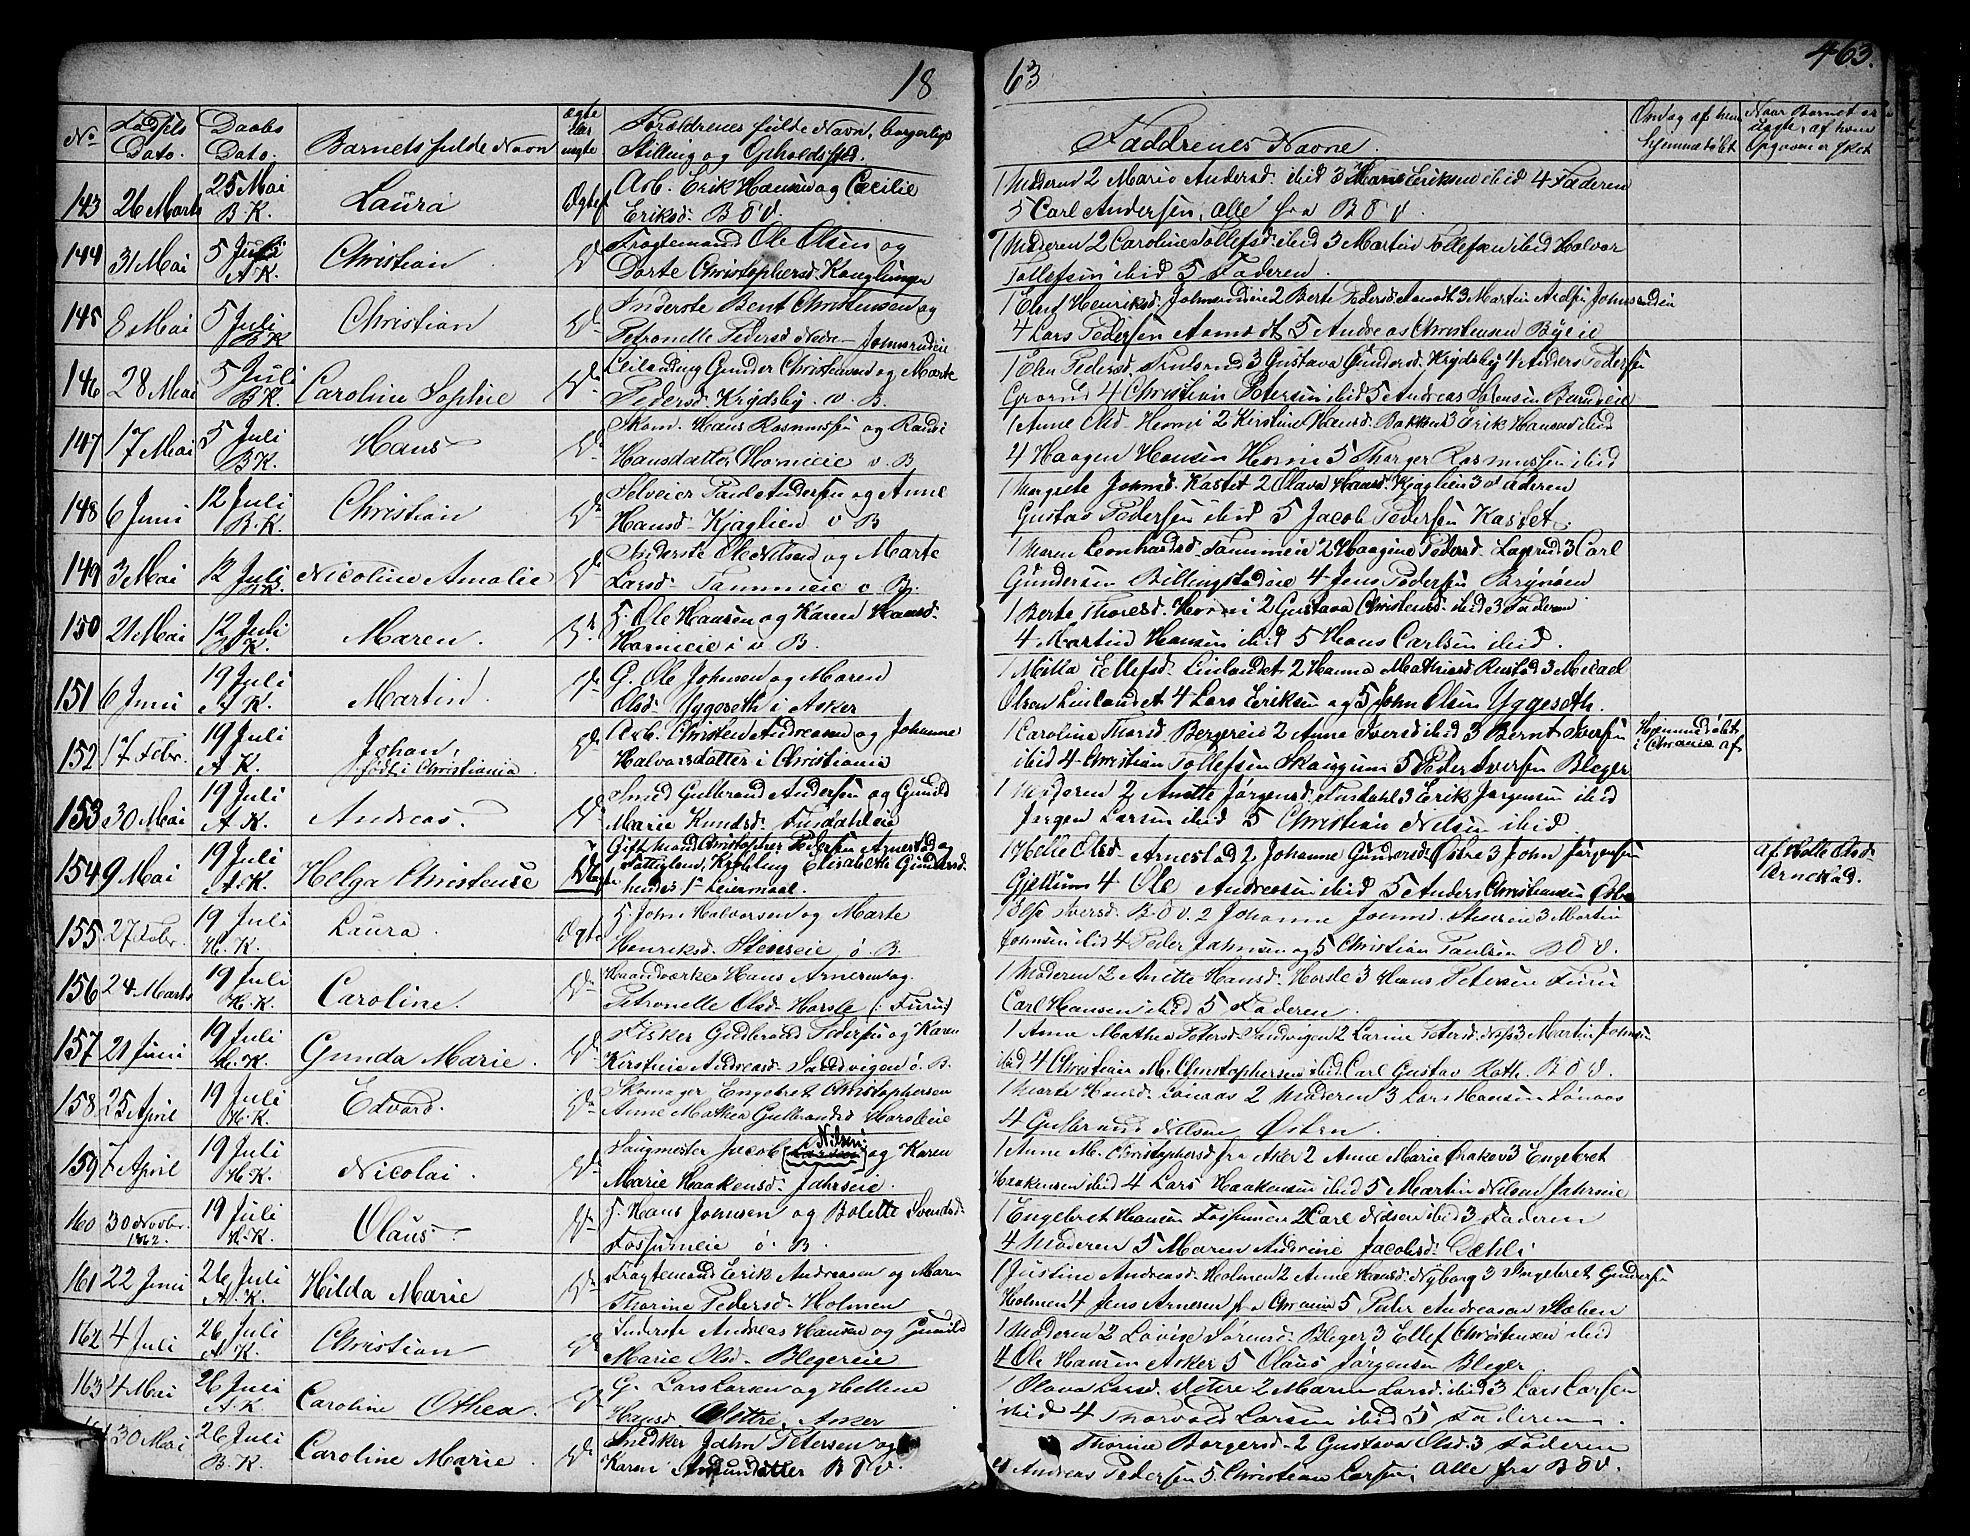 18
63
463.
No
Fødsels Dato.
Daabs Dato.
Barnets fulde Navn
Ægte eller uægte
Forældrenes fulde Navn, borgerlige Stilling og Opholdssted.
Faddrenes Navne.
143 26 Marts 25 Mai B K. Laura Ægte
Arb. Erik Hansen og Cecilie
Eriksd. B O V.
1 Moderen 2 Marie Andersd. ibid 3 Hans Eriksen ibid 4 Faderen
5 Carl Andersen, alle fra B O V.
144 31 Mai 5 Juli A K. Christian Do
Fragtemand Ole Olsen og
Dorte Christophersd. Kauglungen
1 Moderen 2 Caroline Tollefsd. ibid 3 Martin Tollefsen ibid Halvor
Tollefsen ibid 5 Faderen.
145 8 Mai 5 Juli B K Christian Do
Inderste Bent Christensen og
Petronelle Pedersd Nedre Johnsrudeie
1 Else Henriksd. Johnsrudeie 2 Berte Pedersd Aamodt 3 Martin Johnsrudeie
4 Lars Pedersen Aamodt, 5 Andreas Christensen Byeie
146 28 Mai 5 Juli B K. Caroline Sophie Do
Leilending Gunder Christiansen og Marte
Pedersd. Krydsby. v. B.
1 Elen Pedersd. 3 Gustava Gundersd. Krydsby 4 Anders Pedersen
4 Christian Petersen ibid 5 Andreas
147 17 Mai 5 Juli B K. Hans Do
Skom. Hans Rasmussen og Randi
Hansdatter, Horneie v. B
1 Anne Olsd. Horni 2 Kirstine Hansd. Bakken 3 Erik Hansen ibid
4 Haagen Hansen Horni 5 Thorger Rasmussen ibid
148 6 Juni 12 Juli B. K. Christian Do
Selveier Paul Andersen og Anne
Hansd. Kjaglien v B
1 Margrete Johnsd. Kastet 2 Olava Hansd. Kjaglien 3 Faderen
Gustav Pedersen ibid 5 Jacob Pedersen Kastet.
149 3 Mai 12 Juli B K. Nicoline Amalie Do
Inderste Ole Nilsen og Marte
Larsd. Tammeie v B.
1 Maren Leonhardsd. Tammeie 2 Haagine Pedersd. 3 Carl
Gundersen Billingstadeie 4 Jens Pedersen Brynøen
150 21 Mai 12 Juli B K. Maren. Do
S. Ole Hansen og Karen Hansd.
Horneie i v B.
1 Berte Thoresd. Horni 2 Gustava Christensd. ibid 3 Faderen
4 Martin Hansen ibid 5 Hans Carlsen ibid.
151 6 Juni 19 Juli A K. Martin. Do
G. Ole Johnsen og Maren
Olsd. Yggeseth i Asker
1 Milla Ellefsd. Linlandet 2 Hanna Mathiasd. Rustad 3 Micael
Olsen Linlandet 4 Lars Eriksen og 5 John Olsen Yggeseth.
152 17 Febr. 19 Juli A K. Johan, født i Christiania. Do
Arb. Christen Andreasen og Johanne
Halvorsdatter i Christiania
1 Caroline Thorsd. Bergereie 2 Anne Iversd ibid 3 Bernt Iversen
ibid 4 Christian Tollefsen Skaugum 5 Peder Iversen Bleger
Hjemmedøbt i Chrania af
153 30 Mai 19 Juli A K. Andreas. Do
Smed Gulbrand Andersen og Gunild
Marie Knudsd. Fusdahleie
1 Moderen 2 Anette Jørgensd. Fusdahl 3 Erik Jørgensen ibid
Jørgen Larsen ibid 5 Christian Nilsen ibid
154 9 Mai 19 Juli A. K. Helga Christense Uægte
Gift Mand Christopher Pedersen Arnestad og
Fattiglem, Krøbling Elisabeth Gundersd.
hendes 1ste Leiermaal.
1 Helle Olsd. Arnestad 2 Johanne Gundersd. Østre 3 John Jørgensen
Gjettum 4 Ole Andreasen ibid 5 Anders Christiansen
af Helle Olsd. Arnestad.
155 27 Febr. 19 Juli H. K. Laura. Ægte
S. John Halvorsen og Marte
Henriksd. Steinseie ø. B.
1 Else Iversd. B O V. 2 Johanne Johnsd. 3 Martin
Johnsen ibid 4 Peder Johnsen og 5 Christian Paulsen B O V.
156 24 Marts 19 Juli H. K. Caroline. Do
Haandværker Hans Arnesen og
Petronelle Olsd. Horsle (: Furu)
1 Moderen 2 Anette Hansd. Horsle 3 Hans Petersen Furu
Carl Hansen ibid 5 Faderen.
157 21 Juni 19 Juli H. K. Gunda Marie. Do
Fisker Gulbrand Pedersen og Karen
Kirstine Andreasd. Sandvigen ø. B.
1 Anne Mathea Petersd. Sandvigen 2 Larine Petersd. 3 Martin Johnsen
ibid 4 Christian M. Christophersen ibid Carl Gustav Roth. B O V.
158 25 April 19 Juli H. K. Edvard. Do
Skomager Engebret Christophersen
Anne Mathea Gulbrandsd Horsleeie
1 Marte Hansd. Lønaas 2 Moderen 3 Lars Hansen Lønaas
4 Gulbrand Nilsen Østern.
159 7 April 19 Juli H. K. Nicolai. Do
Saugmester Jacob Nilsen og Karen
Marie Haakensd. Jahrseie.
1 Anne M. Christophersd fra Asker 2 Anne Marie 3 Engebret
Haakensen ibid 4 Lars Haakensen ibid 5 Martin Nilsen Jahrseie
160 30 Novbr. 1862. 19 Juli H. K. Olaus Do
S. Hans Johnsen og Bolette Svendsd.
Fossumeie ø. B.
1 Engebret Hansen Fossumeie 2 Carl Nilsen ibid 3 Faderen
4 Moderen 5 Maren Andrine Jacobsd. Dæhli
161 22 Juni 26 Juli A. K. Hilda Marie Do
Fragtemand Erik Andreasen og Maren
Thorine Pedersd. Holmen
1 Justine Andreasd. Holmen 2 Anne Hansd. Nyborg 3 Ingebret Gundersen
Holmen 4 Jens Arnesen fra Chrania 5 Peder Andreasen Støben
162 4 Juli 26 Juli A K. Christian Do
Inderste Andreas Hansen og Gunild
Marie Olsd. Blegereie
1 Moderen 2 Lovise Sørensd. Bleger 3 Ellef Christensen ibid
4 Ole Hansen Asker 5 Olaus Jørgensen Bleger
163 4 Mai 26 Juli A. K Caroline Othea. Do
G. Lars Larsen og Hellene
Hansd. Asker
1 Olava Larsd. 2 Maren Larsd. ibid 3 Lars Larsen
ibid 4 Thorvald Larsen ibid 5 Faderen.
30 Mai 26 Juli B. K. Caroline Marie. Do
Snedker John Petersen og
Karen Amundatter B O V.
Thorine Borgersd. 2 Gustava Olsd. 3 Faderen
Andreas Pedersen 5 Christian Larsen, alle fra B O V.